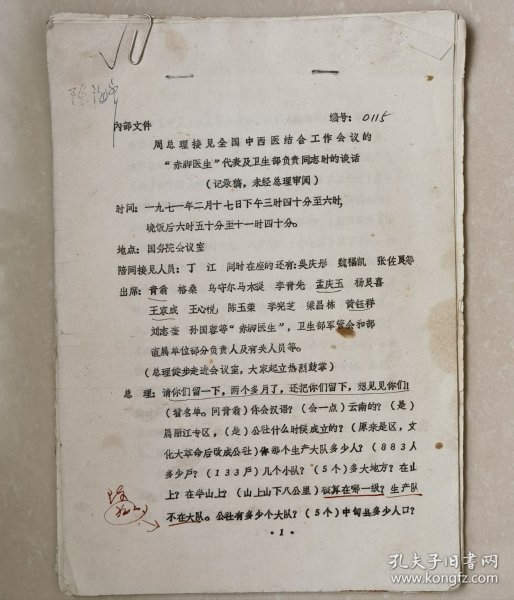 内部文件
编号: 0115
周总理接见全国中西医结合工作会议的
“赤脚医生”代表及卫生部负责同志时的谈话
(记录稿,未经总理审阅)
时间: 一九七一年二月十七日下午三时四十分至六时,
晚饭后六时五十分至十一时四十分。
地点: 国务院会议室
陪同接见人员: 丁 江 同时在座的还有: 吴庆彤 魏福凯 张佐良等
出席: 青翁 格桑 乌守尔马木提 李青先 孟庆玉 杨贝喜
王家成 王心悦 陈玉荣 李宪芝 梁昌栋 黄钰祥
刘志奎 孙国蓉等“赤脚医生”,卫生部军管会和部
直属单位部分负责人及有关人员等。
(总理徒步走进会议室,大家起立热烈鼓掌)
总 理: 请你们留一下,两个多月了,还把你们留下,想见见你们!
(看名单。问青翁)你会汉语?(会一点)云南的?(是)
属丽江专区,(是)公社什么时候成立的?(原来是区,文
化大革命后改成公社)你那个生产大队多少人?(883人
多少户?(133户)几个小队?(5个)多大地方?在山
上?在半山上?(山上山下八公里)核算在哪一级?生产队
不在大队。公社有多少个大队?(5个)中甸县多少人口?
·1·
孔夫子旧书网
book.kongfz.com